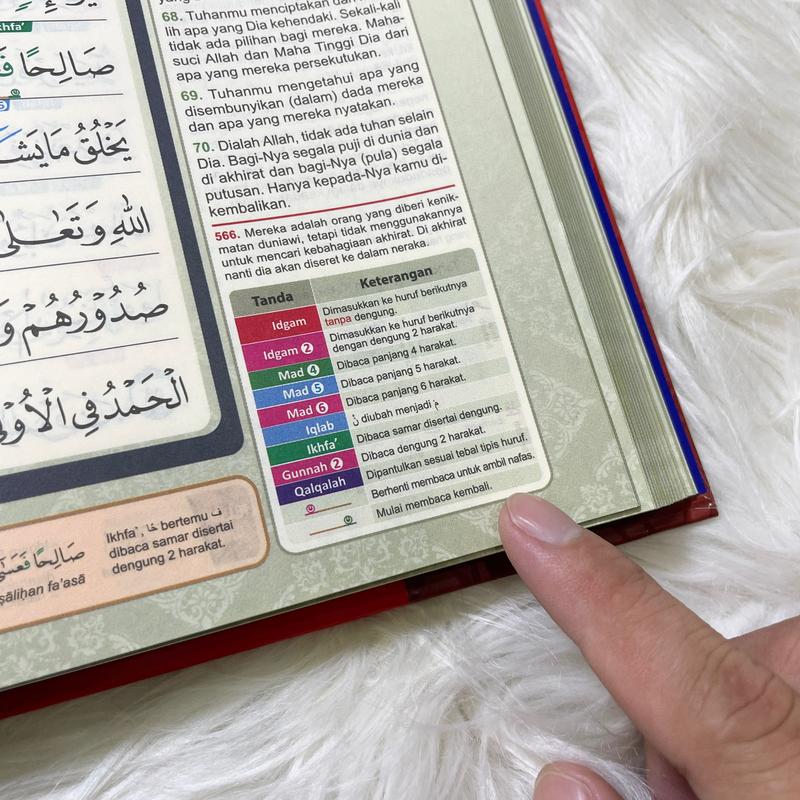 khfa’
صَالِحًا فَ
يَخْلُقُ مَا يَشَ
اللّٰهِ وَتَعٰلٰى
صُدُوْرُهُمْ وَ
الْحَمْدُ فِى الْاُوْلٰى
68. Tuhanmu menciptakan dan
lih apa yang Dia kehendaki. Sekali-kali
tidak ada pilihan bagi mereka. Maha-
suci Allah dan Maha Tinggi Dia dari
apa yang mereka persekutukan.
69. Tuhanmu mengetahui apa yang
disembunyikan (dalam) dada mereka
dan apa yang mereka nyatakan.
70. Dialah Allah, tidak ada tuhan selain
Dia. Bagi-Nya segala puji di dunia dan
di akhirat dan bagi-Nya (pula) segala
putusan. Hanya kepada-Nya kamu di-
kembalikan.
566. Mereka adalah orang yang diberi kenik-
matan duniawi, tetapi tidak menggunakannya
untuk mencari kebahagiaan akhirat. Di akhirat
nanti dia akan diseret ke dalam neraka.
Tanda Keterangan
Idgam Dimasukkan ke huruf berikutnya
tanpa dengung.
Idgam 2 Dimasukkan ke huruf berikutnya
dengan dengung 2 harakat.
Mad 4 Dibaca panjang 4 harakat.
Mad 5 Dibaca panjang 5 harakat.
Mad 6 Dibaca panjang 6 harakat.
Iqlab نْ diubah menjadi م
Ikhfa’ Dibaca samar disertai dengung.
Gunnah 2 Dibaca dengung 2 harakat.
Qalqalah Dipantulkan sesuai tebal tipis huruf.
Berhenti membaca untuk ambil nafas.
Mulai membaca kembali.
صَالِحًا فَعَسٰٓى
ṣāliḥan fa'asā
Ikhfa’, حًا bertemu ف
dibaca samar disertai
dengung 2 harakat.